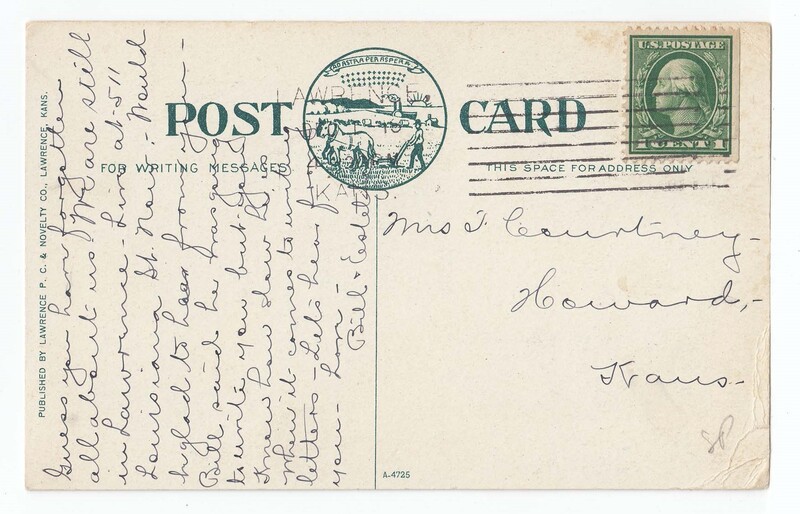 AD ASTRA PER ASPERA
LAWRENCE
KANS.
POST CARD
FOR WRITING MESSAGES
THIS SPACE FOR ADDRESS ONLY
U.S. POSTAGE
1 CENT 1
PUBLISHED BY LAWRENCE P. C. & NOVELTY CO., LAWRENCE, KANS.
Guess you have forgotten
all about us. We are still
in Lawrence - Live at 511
Louisiana St. Now, - Would
be glad to hear from you -
Bill said he was going
to write you but you
Know how slow he is
when it comes to writing
letters - Let's hear from
you - Love -
Bill & Estell
Mrs F Courtney -
Howard, -
Kans -
SP
A-4725